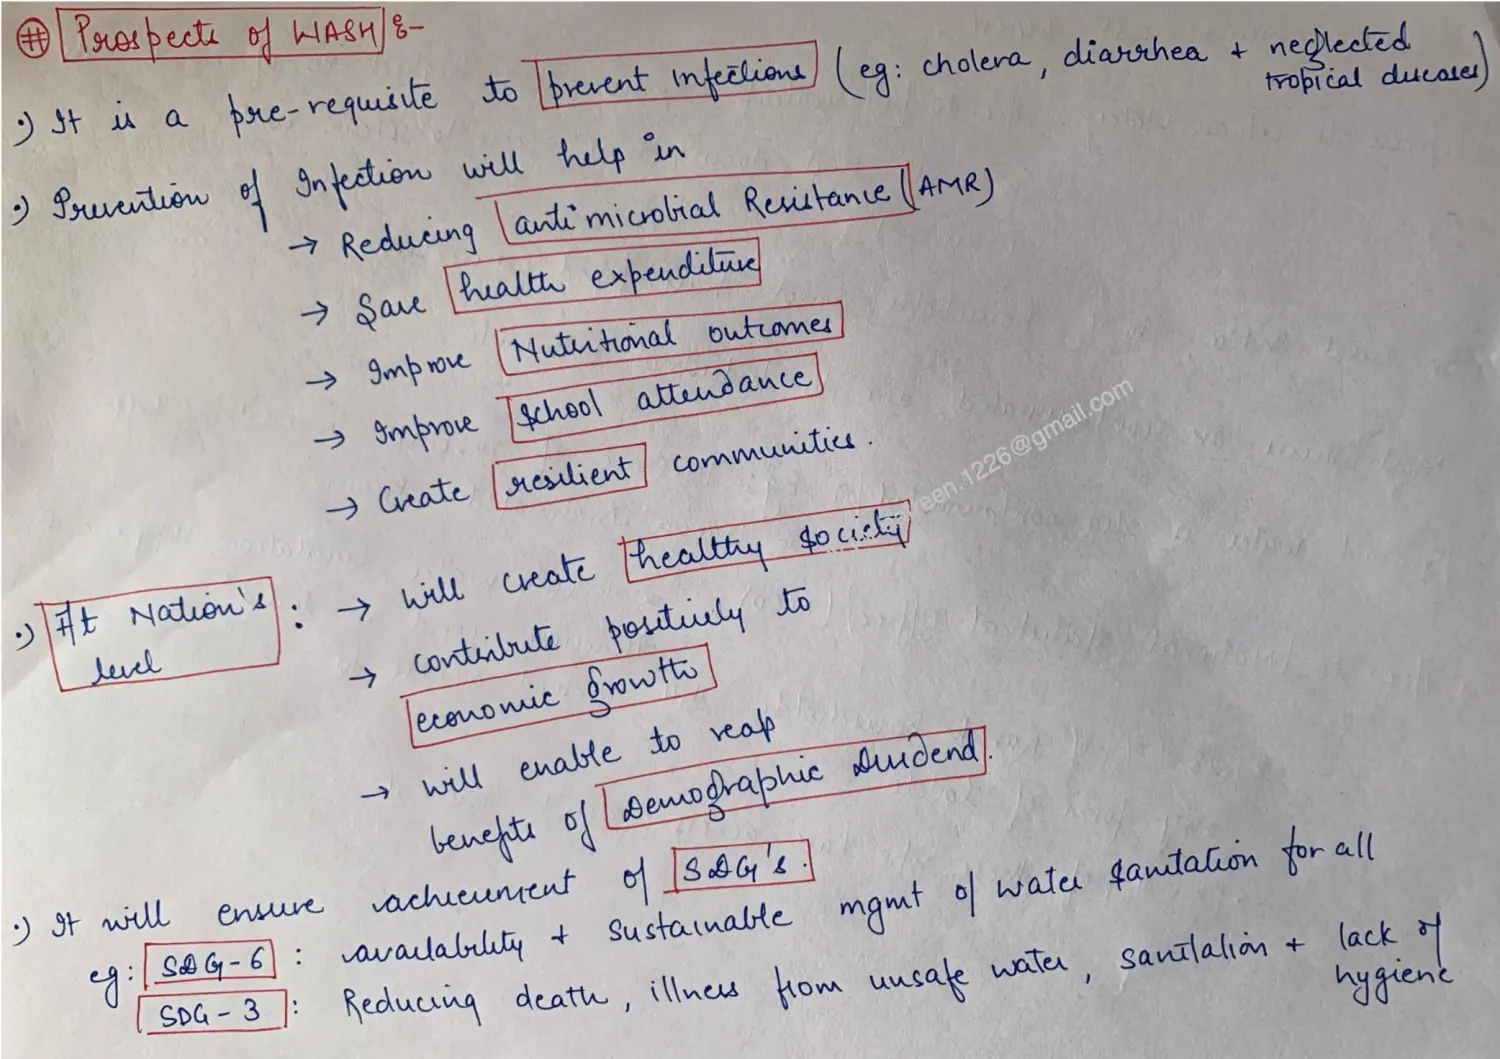 # Prospects of WASH :-
•) It is a pre-requisite to prevent Infections (eg: cholera, diarrhea + neglected
tropical diseases)
•) Prevention of Infection will help in
→ Reducing antimicrobial Resistance (AMR)
→ Save health expenditure
→ Improve Nutritional outcomes
→ Improve School attendance
→ Create resilient communities.
een.1226@gmail.com
•) At Nation's level : → will create healthy society
→ contribute positively to
economic growth
→ will enable to reap
benefits of Demographic Dividend.
•) It will ensure achievement of SDG's.
eg: SDG-6 : availability + sustainable mgmt of water sanitation for all
SDG-3 : Reducing death, illness from unsafe water, sanitation + lack of
hygiene